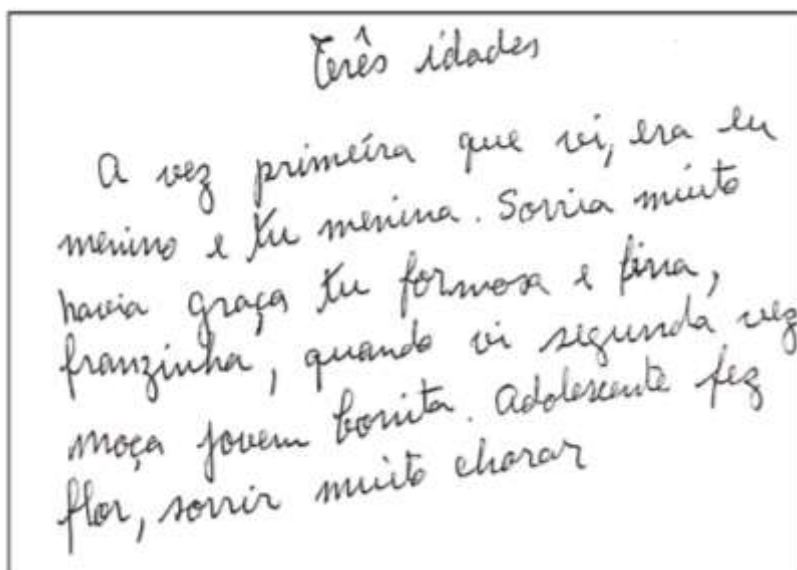 Três idades
A vez primeira que vi, era eu
menino e tu menina. Sorria muito
havia graça tu formosa e fina,
franzinha, quando vi segunda vez
moça jovem bonita. Adolescente fez
flor, sorrir muito chorar